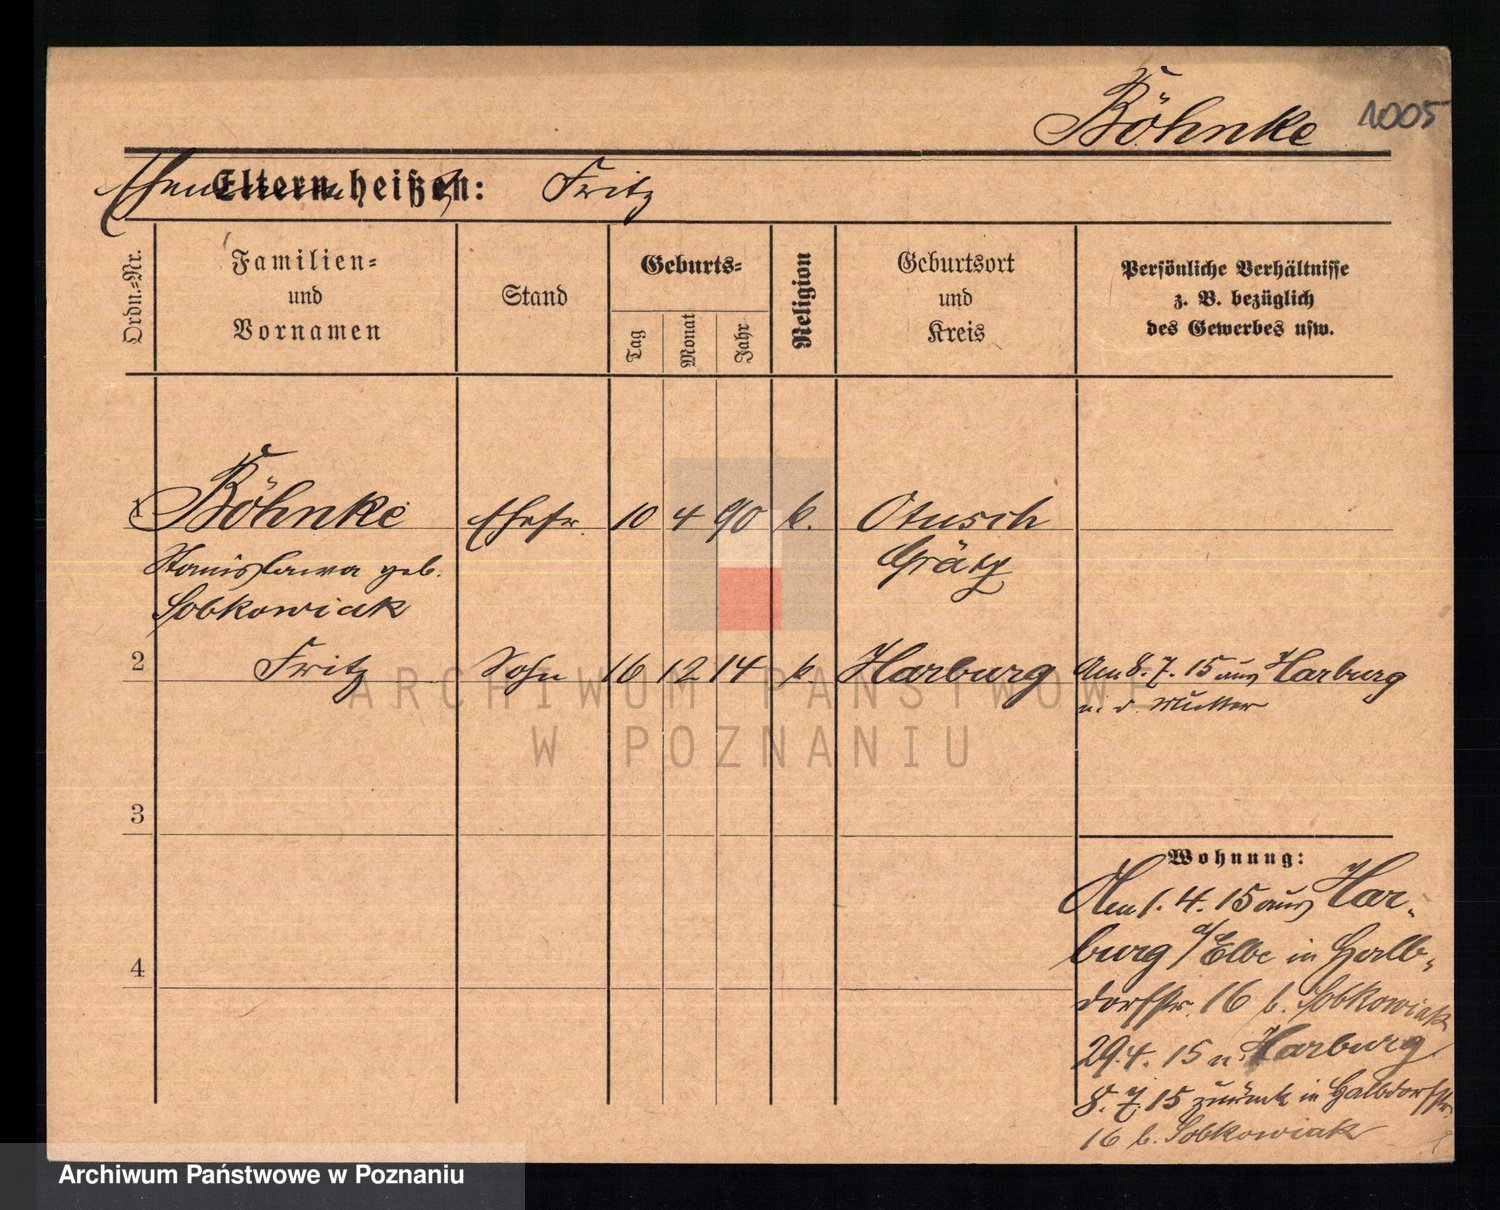 Böhnke 1005
Eltern heißen: Fritz
Ordn.-Nr.
Familien-
und
Vornamen
Stand
Geburts-
Tag
Monat
Jahr
Religion
Geburtsort
und
Kreis
Persönliche Verhältnisse
z. B. bezüglich
des Gewerbes usw.
1 Böhnke Ehefr. 10 4 90 k. Otusch
Stanislawa geb. Grätz
Sobkowiak
2 Fritz Sohn 16 12 14 k Harburg Am 8. 7. 15 aus Harburg
m. d. Mutter
3
4
Wohnung:
Am 1. 4. 15 aus Har-
burg a/Elbe in Halb-
dorfstr. 16 b. Sobkowiak
29. 4. 15 n. Harburg
8. 7. 15 zurück in Halbdorfstr.
16 b. Sobkowiak
ARCHIWUM PAŃSTWOWE
W POZNANIU
Archiwum Państwowe w Poznaniu